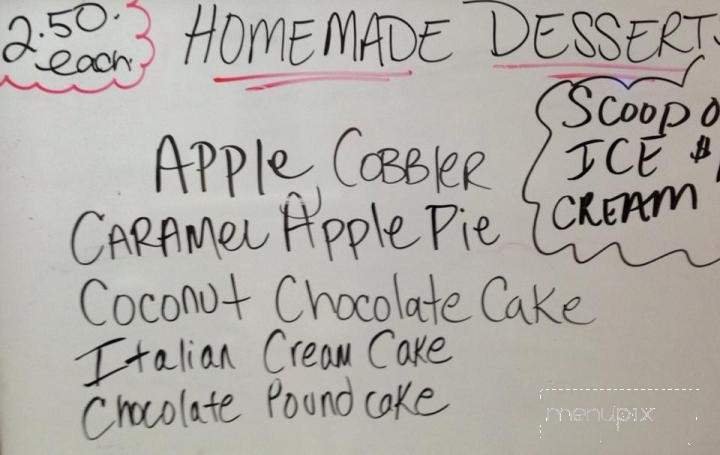 2.50.
each.
HOMEMADE DESSERT
SCOOP
ICE $
CREAM
APPle COBBleR
CARAMeL Apple Pie
Coconut Chocolate Cake
Italian Cream Cake
Chocolate Pound cake
menupix